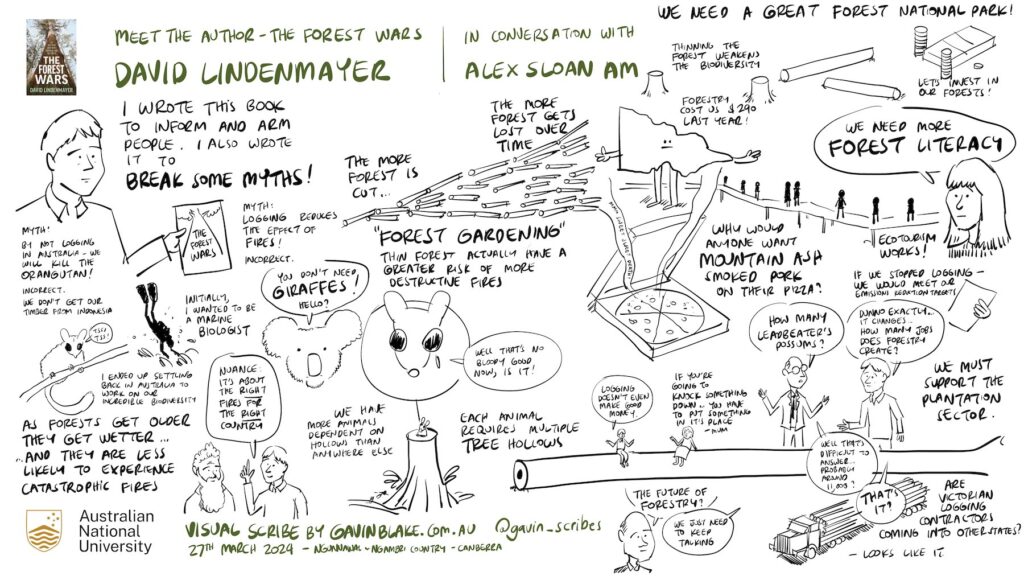 THE FOREST WARS
DAVID LINDENMAYER
MEET THE AUTHOR - THE FOREST WARS
DAVID LINDENMAYER
IN CONVERSATION WITH
ALEX SLOAN AM
WE NEED A GREAT FOREST NATIONAL PARK!
THINNING THE
FOREST WEAKENS
THE BIODIVERSITY
LET'S INVEST IN
OUR FORESTS!
FORESTRY
COST US $290
LAST YEAR!
WE NEED MORE
FOREST LITERACY
I WROTE THIS BOOK
TO INFORM AND ARM
PEOPLE. I ALSO WROTE
IT TO
BREAK SOME MYTHS!
THE
FOREST
WARS
THE MORE
FOREST IS
CUT...
THE MORE
FOREST GETS
LOST OVER
TIME
MYTH:
BY NOT LOGGING
IN AUSTRALIA - WE
WILL KILL THE
ORANGUTAN!
INCORRECT.
WE DON'T GET OUR
TIMBER FROM INDONESIA
MYTH:
LOGGING REDUCES
THE EFFECT OF
FIRES!
INCORRECT.
"FOREST GARDENING"
THIN FOREST ACTUALLY HAVE A
GREATER RISK OF MORE
DESTRUCTIVE FIRES
WHY WOULD
ANYONE WANT
MOUNTAIN ASH
SMOKED PORK
ON THEIR PIZZA?
ECOTOURISM
WORKS!
IF WE STOPPED LOGGING -
WE WOULD MEET OUR
EMISSIONS REDUCTION TARGETS
TSST
TSST!
INITIALLY,
I WANTED TO
BE A
MARINE
BIOLOGIST
I ENDED UP SETTLING
BACK IN AUSTRALIA TO
WORK ON OUR
INCREDIBLE BIODIVERSITY
YOU DON'T NEED
GIRAFFES!
HELLO?
WELL THAT'S NO
BLOODY GOOD
NOW, IS IT!
HOW MANY
LEADBEATER'S
POSSUMS?
DUNNO EXACTLY...
IT CHANGES...
HOW MANY JOBS
DOES FORESTRY
CREATE?
WE MUST
SUPPORT THE
PLANTATION
SECTOR.
AS FORESTS GET OLDER
THEY GET WETTER...
...AND THEY ARE LESS
LIKELY TO EXPERIENCE
CATASTROPHIC FIRES
NUANCE:
IT'S ABOUT
THE RIGHT
FIRES FOR
THE RIGHT
COUNTRY
WE HAVE
MORE ANIMALS
DEPENDENT ON
HOLLOWS THAN
ANYWHERE ELSE
EACH ANIMAL
REQUIRES MULTIPLE
TREE HOLLOWS
LOGGING
DOESN'T EVEN
MAKE GOOD
MONEY
IF YOU'RE
GOING TO
KNOCK SOMETHING
DOWN.. YOU HAVE
TO PUT SOMETHING
IN IT'S PLACE
- MUM
WELL THAT'S
DIFFICULT TO
ANSWER...
PROBABLY
AROUND
THAT'S
IT?
ARE
VICTORIAN
LOGGING
CONTRACTORS
COMING INTO OTHER STATES?
- LOOKS LIKE IT
THE FUTURE OF
FORESTRY?
WE JUST NEED
TO KEEP
TALKING
Australian
National
University
VISUAL SCRIBE BY GAVINBLAKE.COM.AU @gavin_scribes
27TH MARCH 2024 - NGUNNAWAL - NGAMBRI COUNTRY - CANBERRA